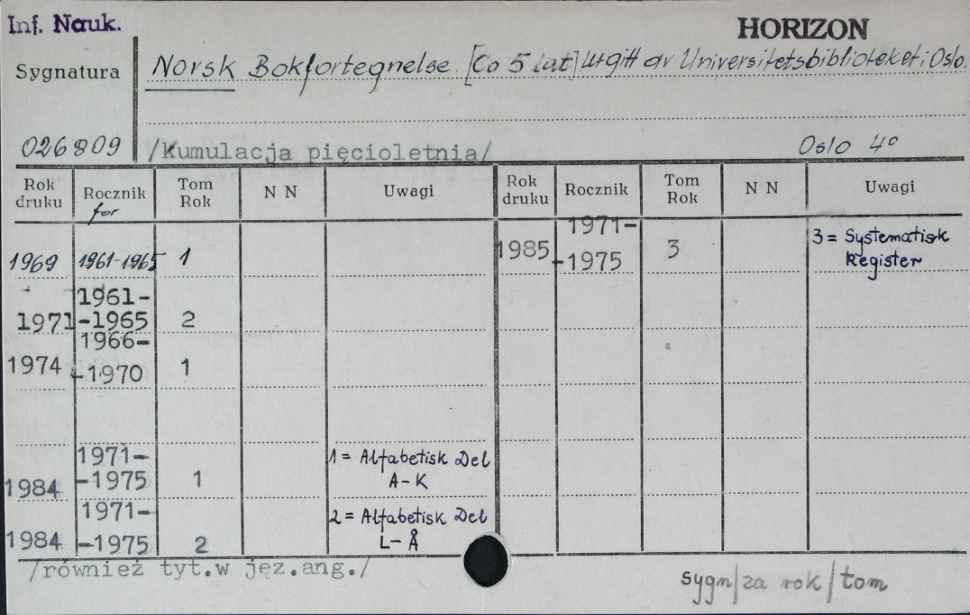 Inf. Nauk.
HORIZON
Sygnatura
Norsk Bokfortegnelse. [Co 5 lat] Utgitt av Universitetsbiblioteket i Oslo.
026809
/Kumulacja pięcioletnia/
Oslo 4°
Rok druku Rocznik Tom Rok N N Uwagi Rok druku Rocznik Tom Rok N N Uwagi
for
1969 1961-1965 1
1985 1971-
-1975 3 3 = Systematisk
Register
1971 1961-
-1965 2
1974 1966-
-1970 1
1984 1971-
-1975 1 1 = Alfabetisk Del
A-K
1984 1971-
-1975 2 2 = Alfabetisk Del
L-Å
/również tyt.w jęz.ang./
sygn/za rok/tom